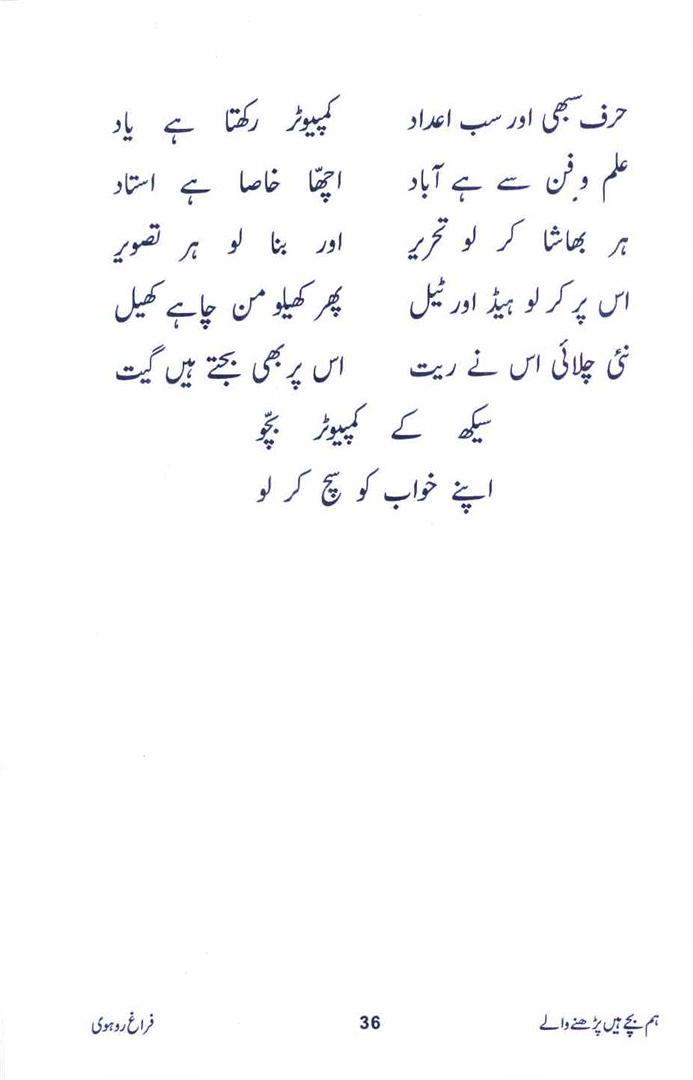 حرف سبھی اور سب اعداد کمپیوٹر رکھتا ہے یاد
علم و فن سے ہے آباد اچھّا خاصا ہے استاد
ہر بھاشا کر لو تحریر اور بنا لو ہر تصویر
اس پر کر لو ہیڈ اور ٹیل پھر کھیلو من چاہے کھیل
نئی چلائی اس نے ریت اس پر بھی بجتے ہیں گیت
سیکھ کے کمپیوٹر بچّو
اپنے خواب کو سچ کر لو
ہم بچے ہیں پڑھنے والے 36 فراغ روہوی